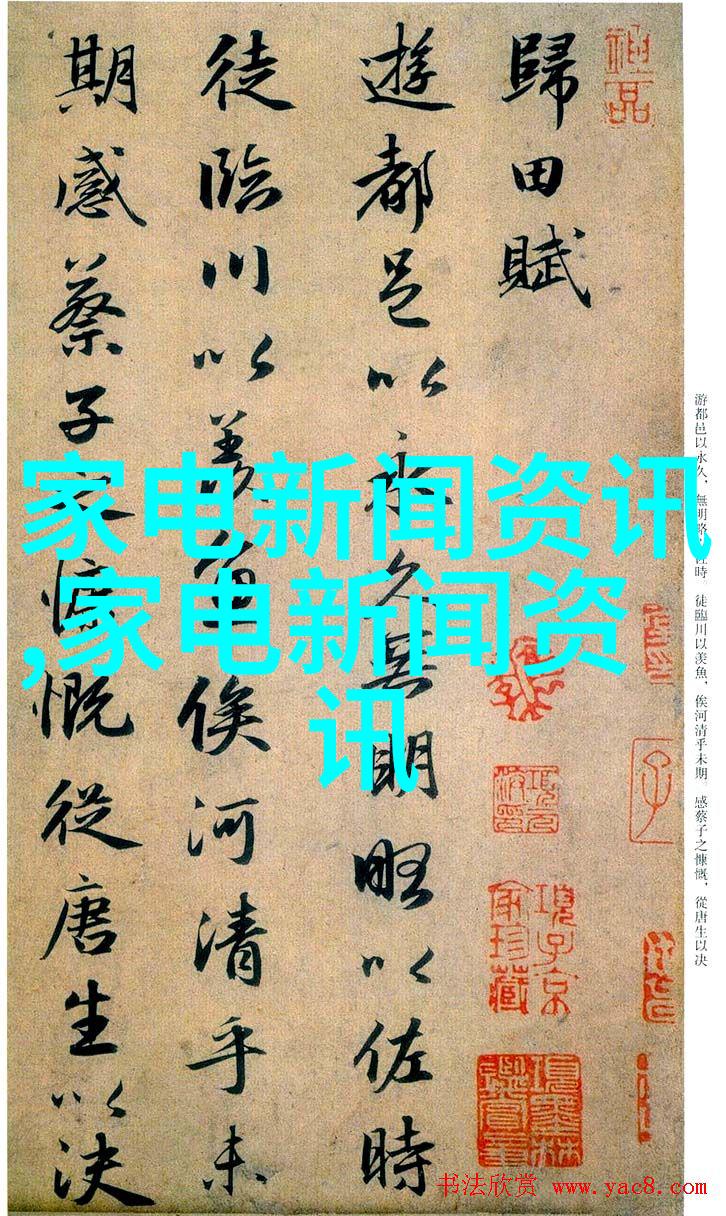 歸田賦
遊都邑以永久無明略以佐時
徒臨川以羨魚俟河清乎未
期感蔡子之慷慨從唐生以決
家电新闻资讯
,家电新闻资
讯
游都邑以永久,無明略以佐時。徒臨川以羨魚,俟河清乎未期。感蔡子之慷慨,從唐生以决
神品
項子京家珍藏
項墨林鑑賞章
子
书法欣赏 www.yac8.com